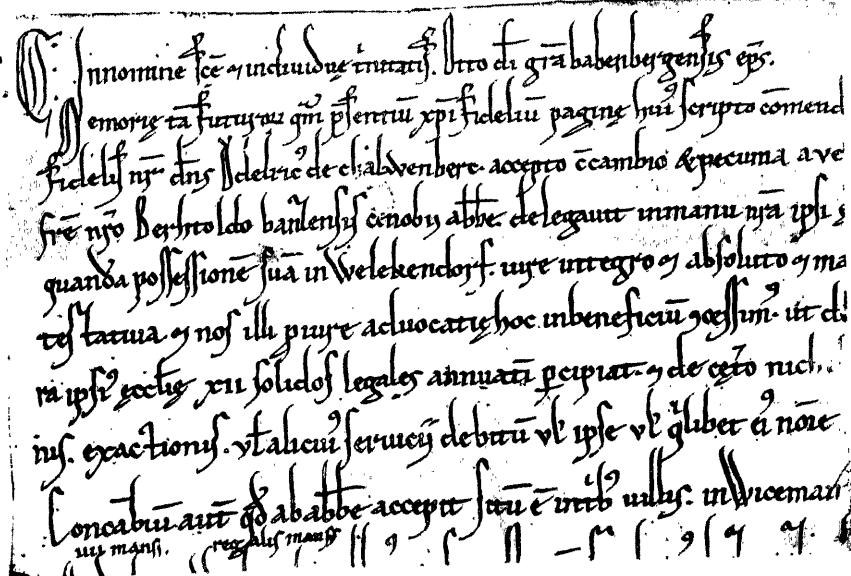 C. Innomine sc̄ę ⁊ individuę trinitatis. Otto d̄i gr̄a babenbergensis ep̄s.
Memorię tā futuroꝝ qm̄ p̄sentiū xp̄i fideliū paginę hui᷒ scripto cōmend
fidelis nr̄ dn̄s Adelric᷒ de chalwenberc. accepto c̄cambio & pecunia a ve
fr̄e nr̄o Berhtoldo banzensis cēnobii abb̄e. delegavit in manu nr̄a ipsi
quandā possessionē suā in Welekendorf. iure integro ⁊ absoluto ⁊ ma
⁊ nos illi p iure advocatię hoc in beneficiū ꝯcessim᷒. ut
ra ipsi᷒ ęcclię xii solidos legales annuatī ꝑcipiat. ⁊ de cęt̄o nich
ius. exactionis. vl̄ alicui᷒ servicii debitū vl̄ ipse vl̄ qͥlibet ei᷒ nōie
Concābiū aut̄ qd̄ ab abb̄e accepit sitū ē in trib᷒ villis. in Wiceman
iiii mansi. regalis mans᷒